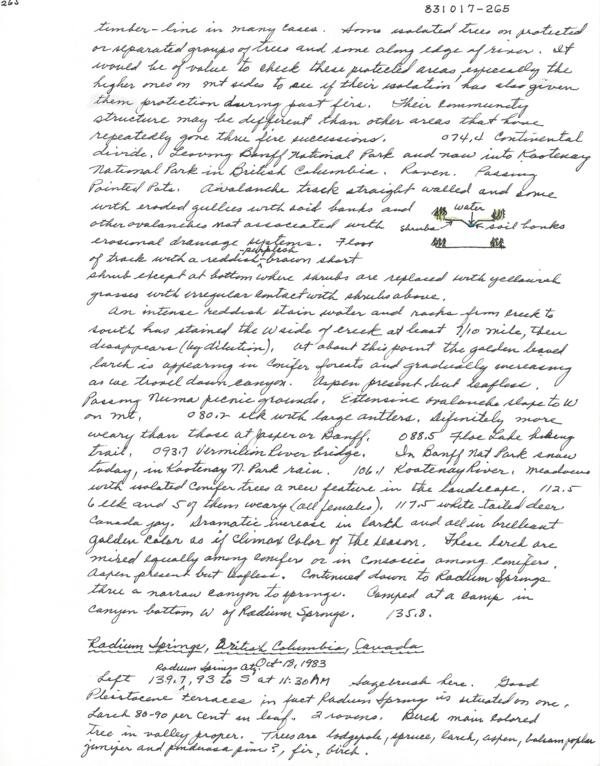 265
831017-265
timber-line in many cases. Some isolated trees on protected
or separated groups of trees and some along edge of river. It
would be of value to check these protected areas, especially the
higher ones on mt sides to see if their isolation has also given
them protection during past firs. Their community
structure may be different than other areas that have
repeatedly gone thru fire successions. 074.4 Continental
divide. Leaving Banff National Park and now into Kootenay
National Park in British Columbia. Raven. Passing
Pointed Pots. Avalanche track straight walled and some
with eroded gullies with soil banks and
water
other avalanches not associated with
shrubs
soil banks
erosional drainage systems. Floor
of track with a reddish-purplish-brown short
shrub except at bottom where shrubs are replaced with yellowish
grasses with irregular contact with shrubs above.
An intense reddish stain water and rocks from creek to
south has stained the W side of creek at least 7/10 mile, then
disappears (by dilution). At about this point the golden leaved
larch is appearing in conifer forests and gradually increasing
as we travel down canyon. Aspen present but leafless.
Passing Numa picnic grounds. Extensive avalanche slope to W
on mt. 080.2 elk with large antlers. Definitely more
weary than those at Jasper or Banff. 088.5 Floe Lake hiking
trail. 093.7 Vermilion River bridge. In Banff Nat Park snow
today, in Kootenay N. Park rain. 106.1 Kootenay River. Meadows
with isolated conifer trees a new feature in the landscape. 112.5
6 elk and 5 of them weary (all females). 117.5 white-tailed deer
Canada jay. Dramatic increase in larch and all in brilliant
golden color as if climax color of the season. These larch are
mixed equally among conifers or in consocies among conifers.
Aspen present but leafless. Continued down to Radium Springs
thru a narrow canyon to springs. Camped at a camp in
canyon bottom W of Radium Springs. 135.8.
Radium Springs, British Columbia, Canada
Radium Springs at Oct 18, 1983
Left 139.7, 93 to S at 11:30 AM Sagebrush here. Good
Pleistocene terraces in fact Radium Spring is situated on one.
Larch 80-90 per cent in leaf. 2 ravens. Birch main colored
tree in valley proper. Trees are lodgepole, spruce, larch, aspen, balsam poplar
juniper and ponderosa pine?, fir, birch.